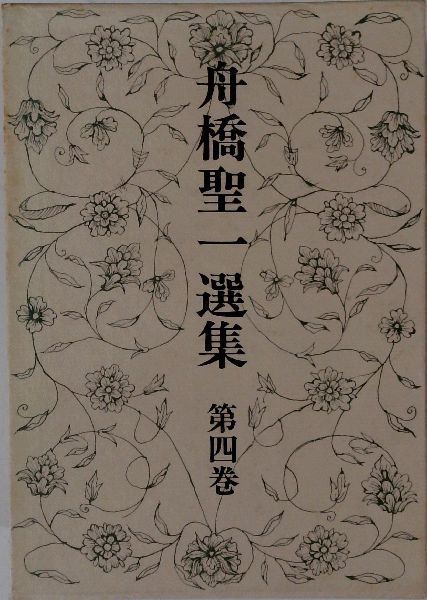 舟橋聖一選集
第四巻